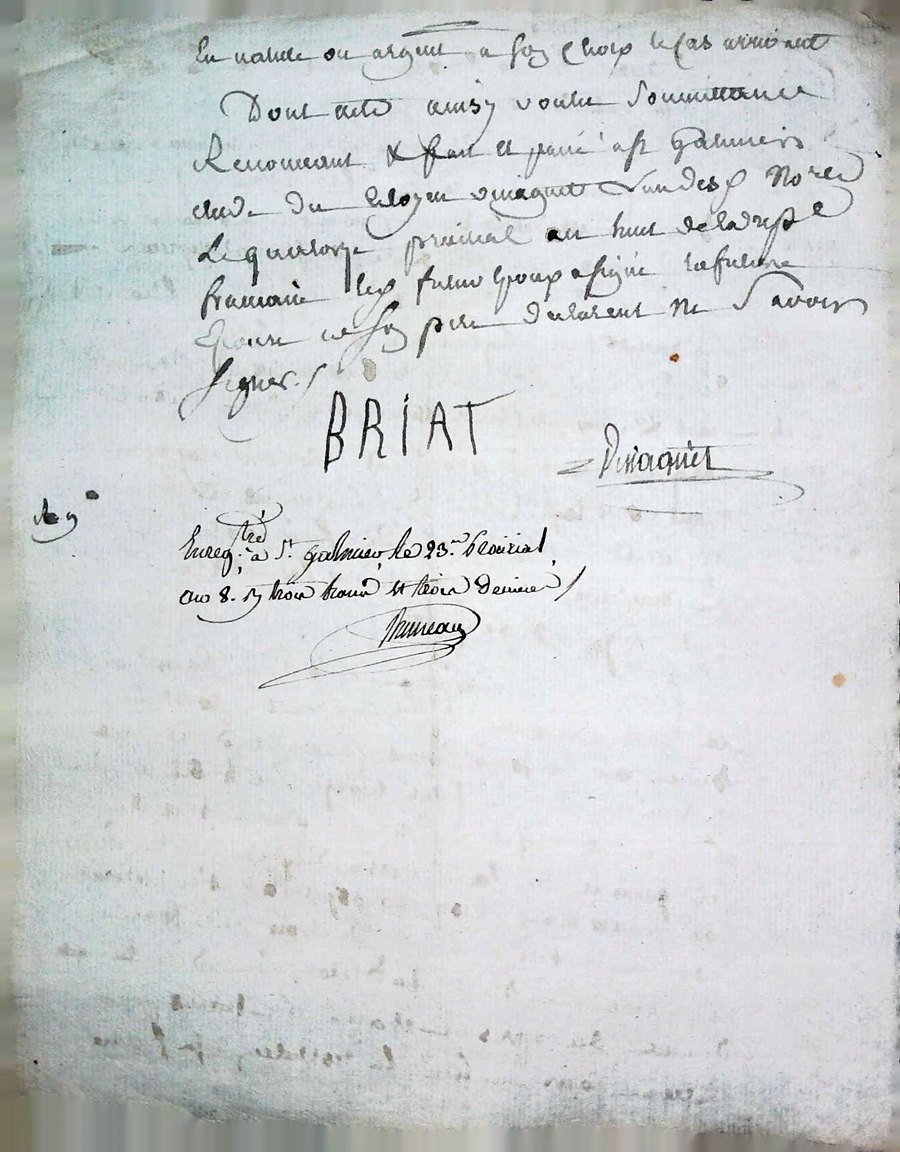 En nature ou argent a son Choix le Cas arrivant
Dont acte ainsy voulu Soumittance
Renonceant & fait et passé a st galmier
etude du Citoyen vinagnet L'un des Nores
Le quatorze prairial an huit de la Rep
francaise le futur Epoux a signé la future
Epouse ne son pere declarent ne Savoir
signer
BRIAT
Enregtré à St. galmier le 23. prairial
an 8. trois francs et trois